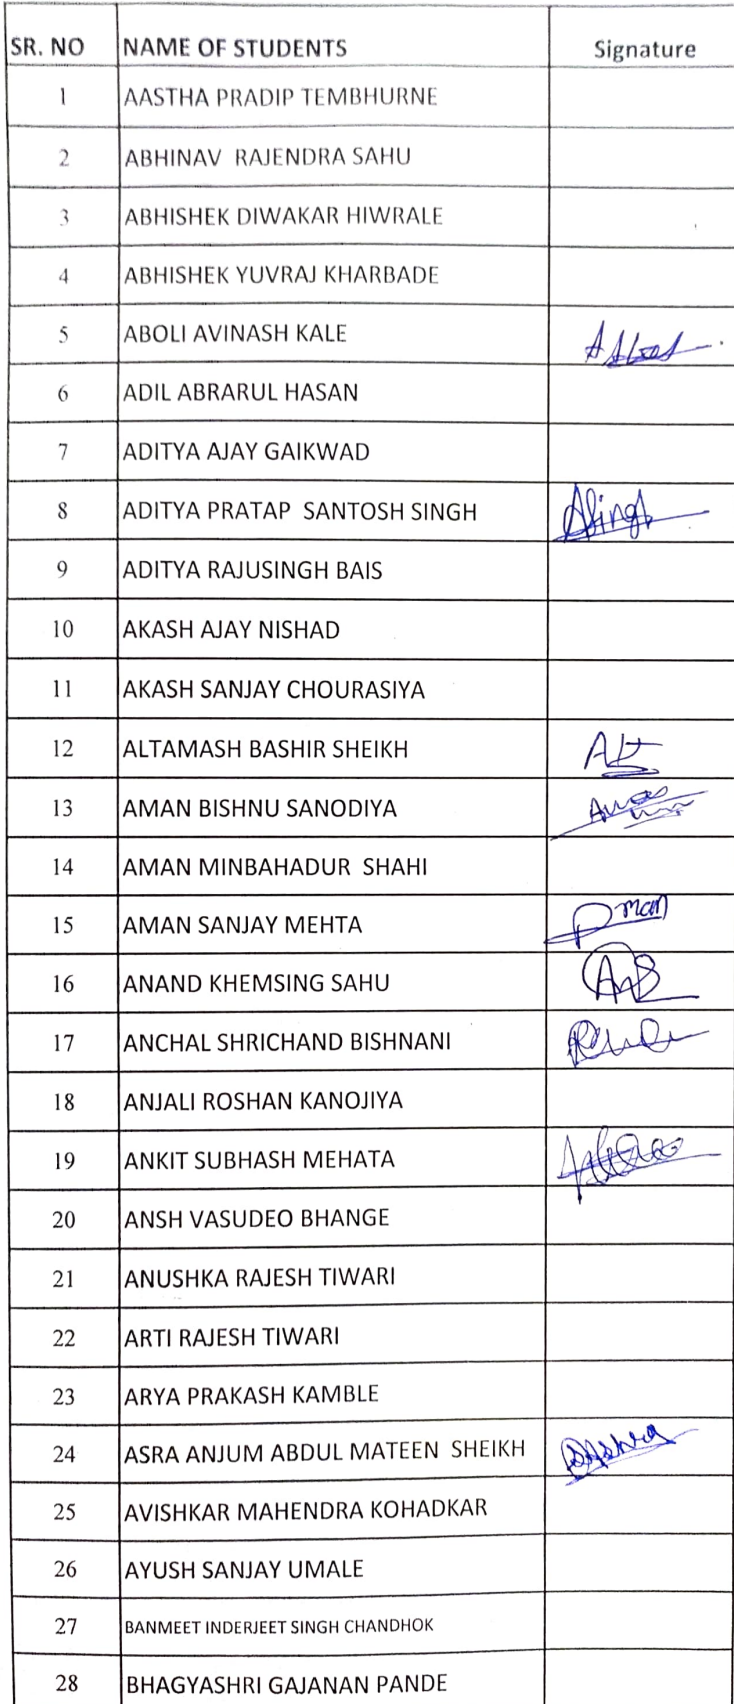 SR. NO NAME OF STUDENTS Signature
1 AASTHA PRADIP TEMBHURNE
2 ABHINAV RAJENDRA SAHU
3 ABHISHEK DIWAKAR HIWRALE
4 ABHISHEK YUVRAJ KHARBADE
5 ABOLI AVINASH KALE
6 ADIL ABRARUL HASAN
7 ADITYA AJAY GAIKWAD
8 ADITYA PRATAP SANTOSH SINGH ASingh
9 ADITYA RAJUSINGH BAIS
10 AKASH AJAY NISHAD
11 AKASH SANJAY CHOURASIYA
12 ALTAMASH BASHIR SHEIKH Alt
13 AMAN BISHNU SANODIYA
14 AMAN MINBAHADUR SHAHI
15 AMAN SANJAY MEHTA
16 ANAND KHEMSING SAHU AnS
17 ANCHAL SHRICHAND BISHNANI
18 ANJALI ROSHAN KANOJIYA
19 ANKIT SUBHASH MEHATA
20 ANSH VASUDEO BHANGE
21 ANUSHKA RAJESH TIWARI
22 ARTI RAJESH TIWARI
23 ARYA PRAKASH KAMBLE
24 ASRA ANJUM ABDUL MATEEN SHEIKH
25 AVISHKAR MAHENDRA KOHADKAR
26 AYUSH SANJAY UMALE
27 BANMEET INDERJEET SINGH CHANDHOK
28 BHAGYASHRI GAJANAN PANDE